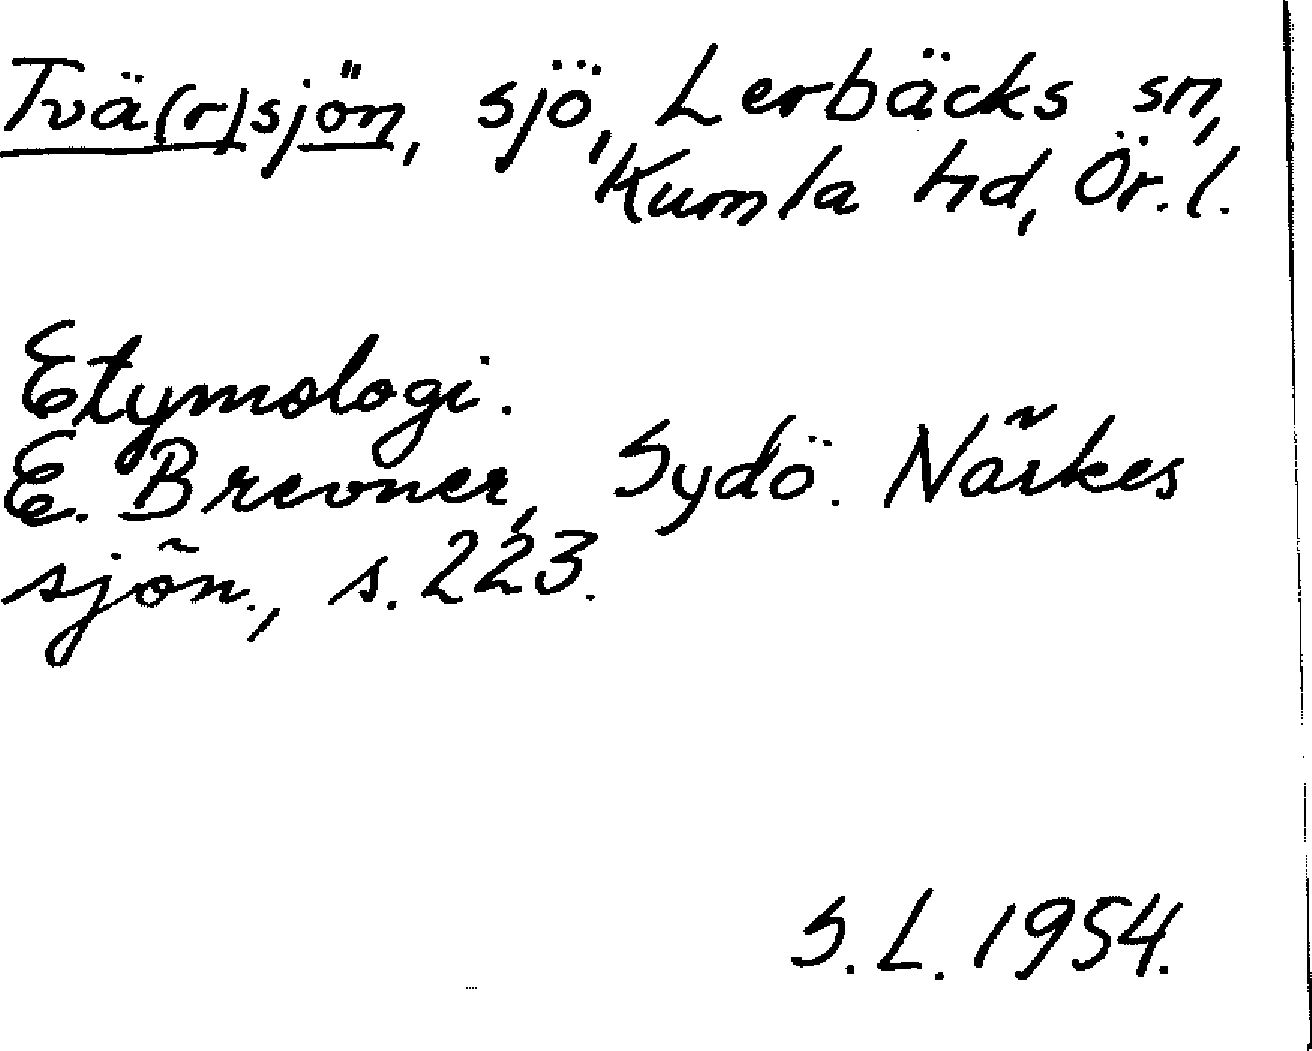 Tvä(r)sjön, sjö, Lerbäcks sn,
Kumla hd, Ör. l.
Etymologi.
E. Brevner, Sydö. Närkes
sjön., s. 223.
S. L. 1954.